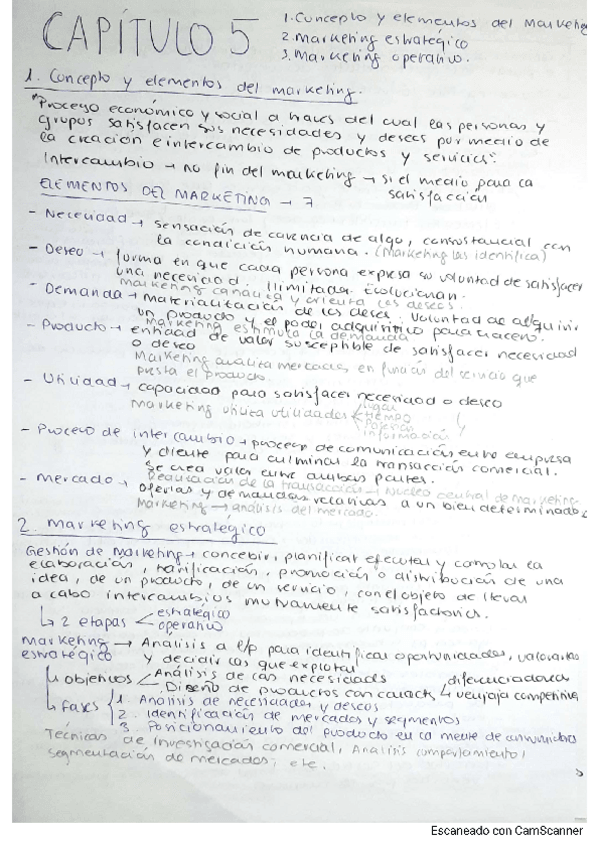 CAPÍTULO 5
1. Concepto y elementos del marke
2. marketing estratégico
3. marketing operativo.
1. Concepto y elementos del marketing.
"Proceso económico y social a través del cual las personas y
grupos satisfacen sus necesidades y deseos por medio de
la creación e intercambio de productos y servicios".
Intercambio → no fin del marketing → si el medio para la
satisfacción
ELEMENTOS DEL MARKETING → 7
- Necesidad → sensación de carencia de algo, consustancial con
la condición humana. (Marketing las identifica)
- Deseo → forma en que cada persona expresa su voluntad de satisfacer
una necesidad. Ilimitados. Evolucionan.
marketing canaliza y orienta los deseos.
- Demanda → materialización de los deseos. Voluntad de adquirir
un producto y el poder adquisitivo para hacerlo.
Marketing estimula la demanda
- Producto → entidad de valor susceptible de satisfacer necesidad
o deseo
Marketing analiza mercados, en función del servicio que
presta el producto.
- Utilidad → capacidad para satisfacer necesidad o deseo
Marketing utiliza utilidades
lugar
tiempo
posesión
información
- Proceso de intercambio → proceso de comunicación entre empresa
y cliente para culminar la transacción comercial.
Se crea valor entre ambas partes.
Realización de la transacción → Núcleo central de marketing.
- Mercado → ofertas y demandas relativas a un bien determinado
Marketing → análisis del mercado.
2. marketing estratégico
Gestión de marketing → concebir, planificar ejecutar y controlar la
elaboración, tarificación, promoción o distribución de una
idea, de un producto, de un servicio, con el objeto de llevar
a cabo intercambios mutuamente satisfactorios.
↳ 2 etapas
estratégico
operativo
marketing estratégico → Análisis a l/p para identificar oportunidades, valorarlas
y decidir las que explotar
↳ objetivos
Análisis de las necesidades
Diseño de productos con caracts
diferenciadoras
↳ ventaja competitiva
↳ fases
1. Análisis de necesidades y deseos
2. Identificación de mercados y segmentos
3. Posicionamiento del producto en la mente de consumidores
Técnicas de investigación comercial, Análisis comportamiento,
segmentación de mercados, etc.
Escaneado con CamScanner